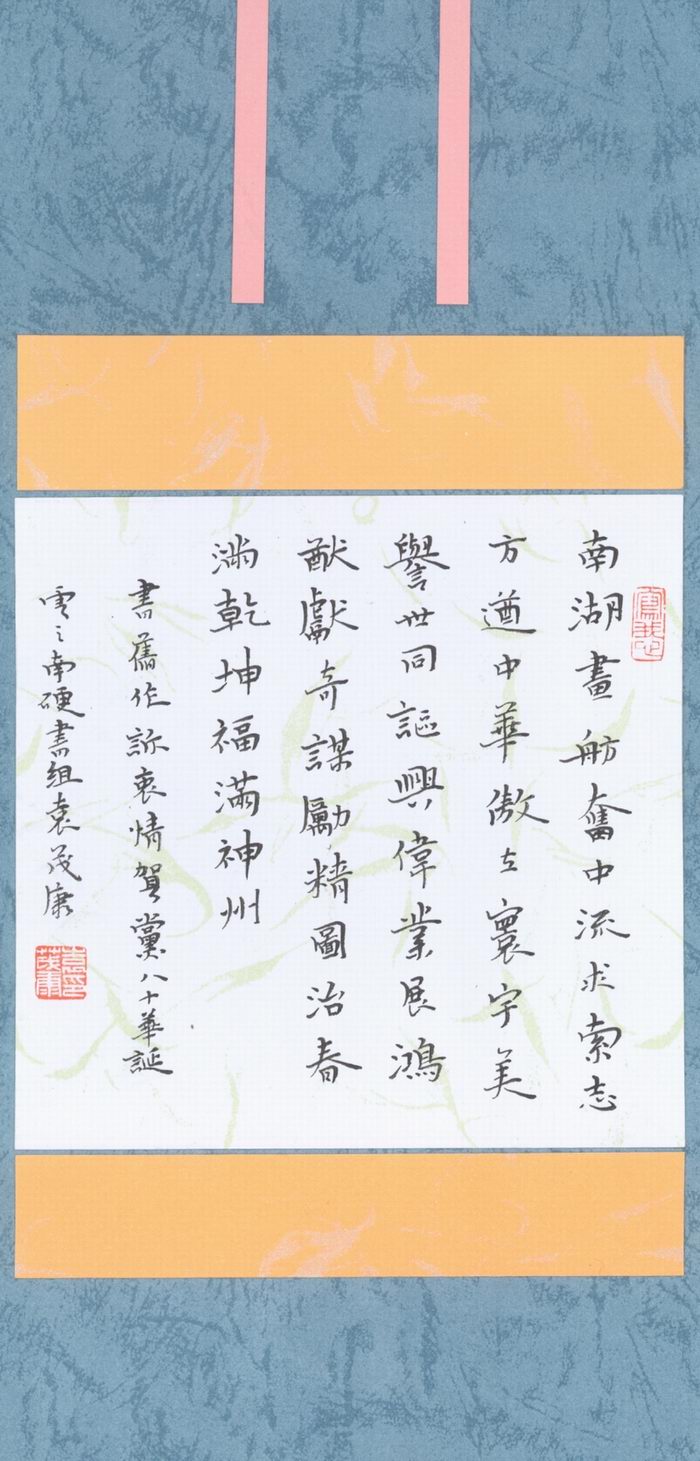 南湖畫舫奮中流求索志
方遒中華傲立寰宇美
譽世同謳興偉業展鴻
猷獻奇謀勵精圖治春
滿乾坤福滿神州
書舊作訴衷情賀黨八十華誕
雲之南硬書組袁茂康